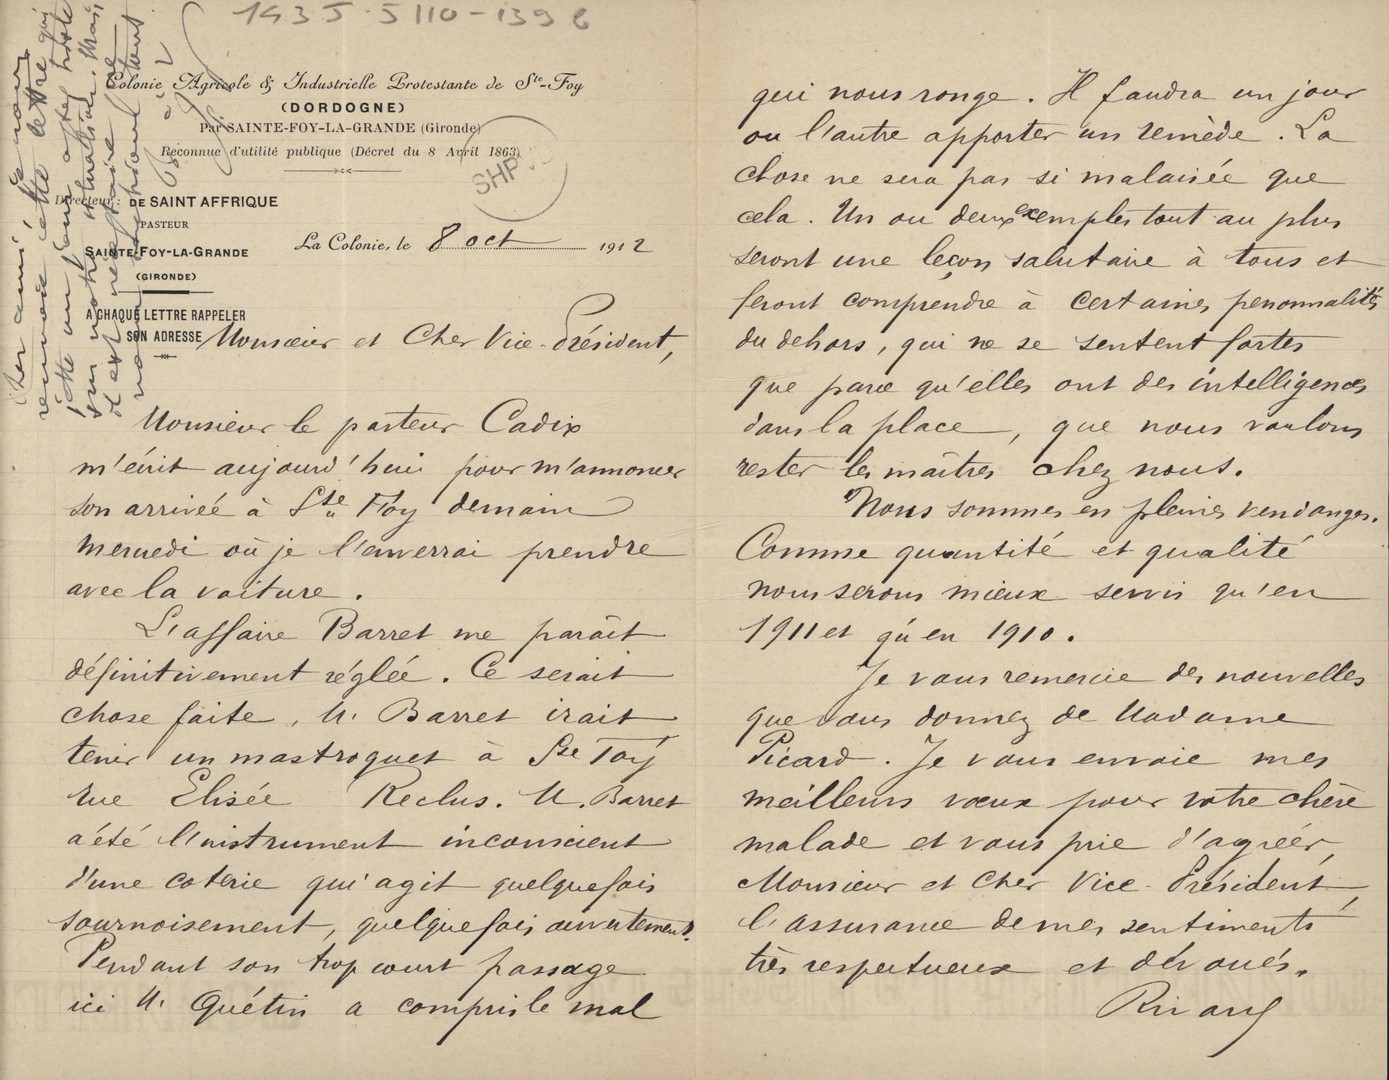 1435-5110-1396
Colonie Agricole & Industrielle Protestante de Ste-Foy
(DORDOGNE)
Par SAINTE-FOY-LA-GRANDE (Gironde)
Reconnue d'utilité publique (Décret du 8 Avril 1863)
SHP
Directeur: DE SAINT AFFRIQUE
PASTEUR
SAINTE-FOY-LA-GRANDE
(GIRONDE)
A CHAQUE LETTRE RAPPELER
SON ADRESSE
La Colonie, le 8 oct 1912
Cher ami,
renvoie cette lettre qui
jette un jour assez triste
sur notre situation. Mais
il est nécessaire
Monsieur et Cher Vice-Président,
Monsieur le pasteur Cadix
m'écrit aujourd'hui pour m'annoncer
son arrivée à Ste Foy demain
mercredi où je l'enverrai prendre
avec la voiture.
L'affaire Barret me paraît
définitivement réglée. Ce serait
chose faite, M. Barret irait
tenir un mastroquet à Ste Foy
rue Elisée Reclus. M. Barret
a été l'instrument inconscient
d'une coterie qui agit quelquefois
sournoisement, quelquefois ouvertement.
Pendant son trop court passage
ici M. Quétin a compris le mal
qui nous ronge. Il faudra un jour
ou l'autre apporter un remède. La
chose ne sera pas si malaisée que
cela. Un ou deux exemples tout au plus
seront une leçon salutaire à tous et
feront comprendre à certaines personnalités
du dehors, qui ne se sentent fortes
que parce qu'elles ont des intelligences
dans la place, que nous voulons
rester les maîtres chez nous.
Nous sommes en pleines vendanges.
Comme quantité et qualité
nous serons mieux servis qu'en
1911 et qu'en 1910.
Je vous remercie des nouvelles
que vous donnez de Madame
Picard. Je vous envoie mes
meilleurs vœux pour votre chère
malade et vous prie d'agréer,
Monsieur et Cher Vice-Président,
l'assurance de mes sentiments
très respectueux et dévoués.